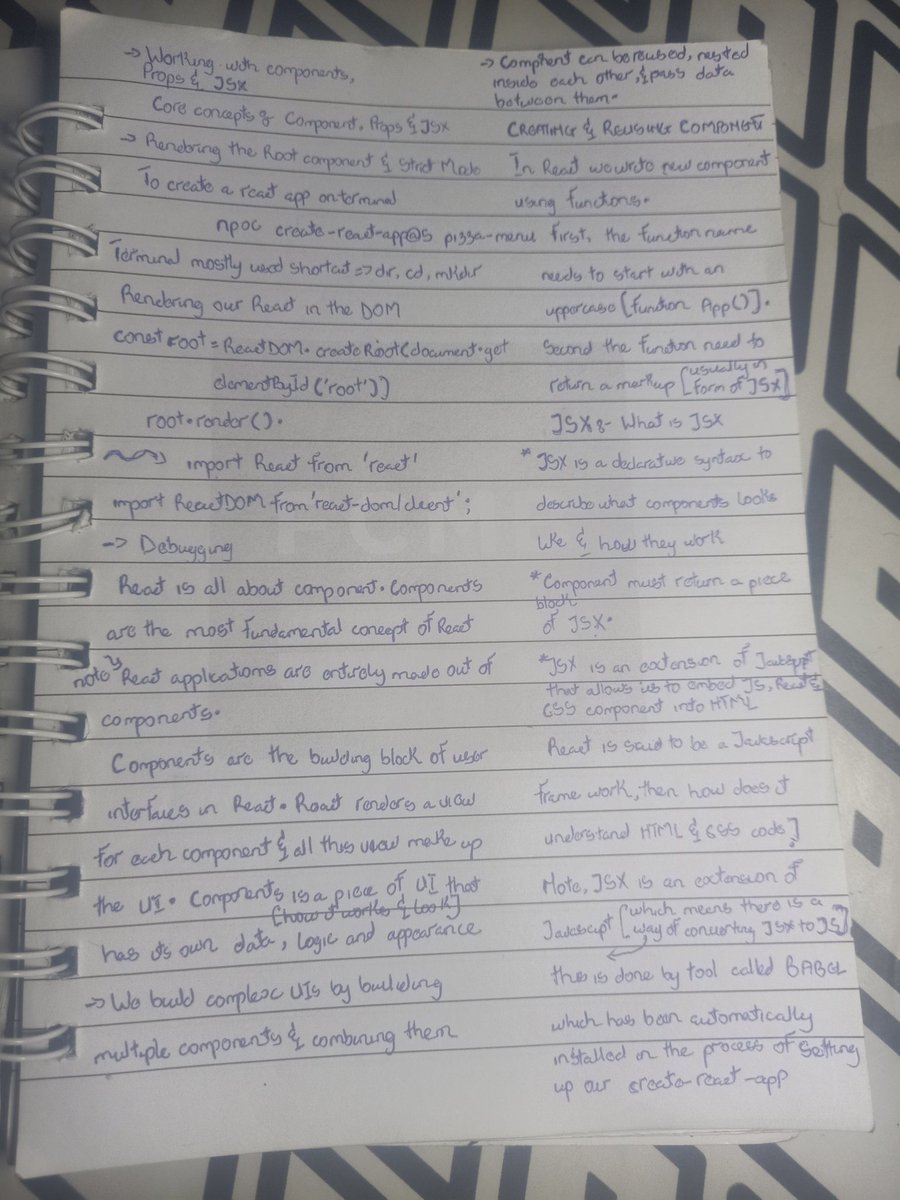 → Working with components,
Props & JSX
Core concepts of Component, Props & JSX
→ Rendering the Root component & Strict Mode
To create a react app on terminal
npx create-react-app@5 pizza-menu
Terminal mostly used shortcut => dir, cd, mkdir
Rendering our React in the DOM
const root = ReactDOM.createRoot(document.get
elementById('root'))
root.render().
import React from 'react'
import ReactDOM from 'react-dom/client';
→ Debugging
React is all about component. Components
are the most fundamental concept of React
note React applications are entirely made out of
components.
Components are the building block of user
interfaces in React. React renders a view
for each component & all this view make up
the UI. Components is a piece of UI that
[how it works & look]
has its own data, logic and appearance
→ We build complex UIs by building
multiple components & combining them
→ Component can be reused, nested
inside each other, & pass data
between them.
CREATING & REUSING COMPONENT
In React we write new component
using functions.
first, the function name
needs to start with an
uppercase [function App()].
Second the function need to
return a markup [usually in
form of JSX]
JSX :- What is JSX
* JSX is a declarative syntax to
describe what components looks
like & how they work
* Component must return a piece
block
of JSX.
* JSX is an extension of Javascript
that allows us to embed JS, React &
CSS component into HTML
React is said to be a Javascript
frame work, then how does it
understand HTML & CSS code]
Note, JSX is an extension of
Javascript [which means there is a
way of converting JSX to JS]
this is done by tool called BABEL
which has been automatically
installed in the process of setting
up our create-react-app